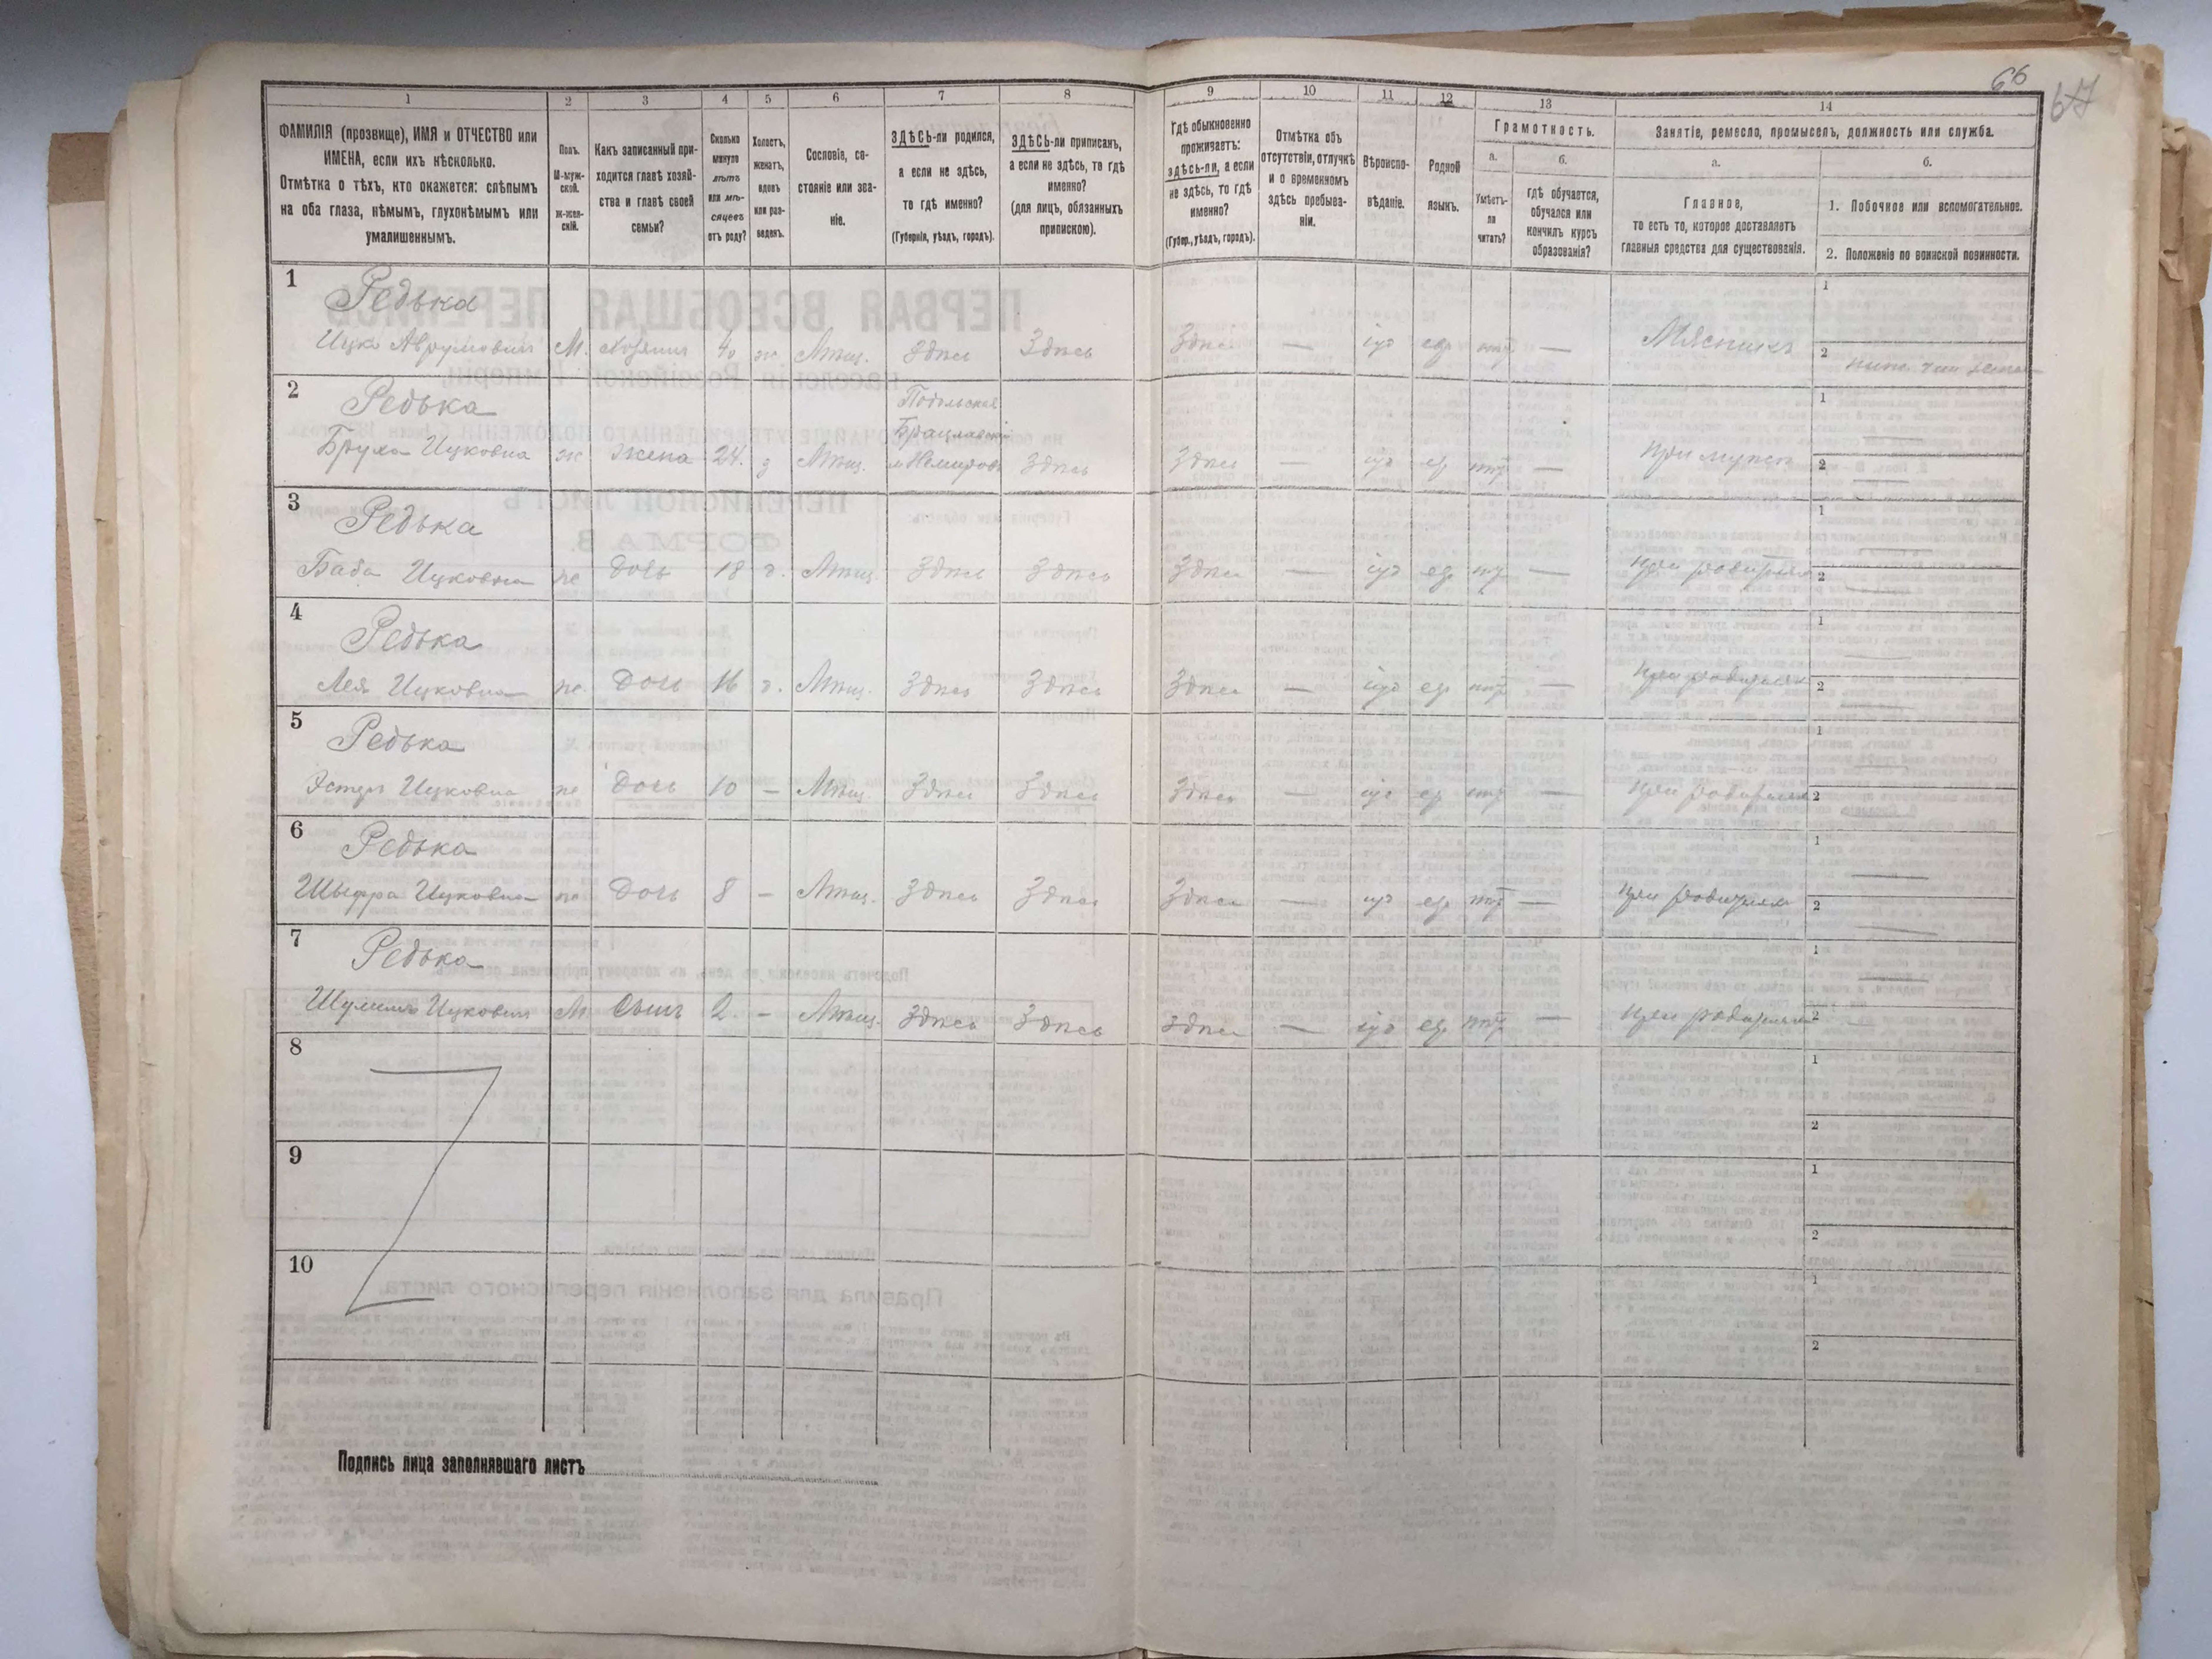 66
67
1
2
3
4
5
6
7
8
9
10
11
12
13
14
ФАМИЛІЯ (прозвище), ИМЯ и ОТЧЕСТВО или
ИМЕНА, если ихъ нѣсколько.
Отмѣтка о тѣхъ, кто окажется: слѣпымъ
на оба глаза, нѣмымъ, глухонѣмымъ или
умалишеннымъ.
Полъ.
М-муж-
ской.
Ж-жен-
скій.
Какъ записанный при-
ходится главѣ хозяй-
ства и главѣ своей
семьи?
Сколько
минуло
лѣтъ
или мѣ-
сяцевъ
отъ роду?
Холостъ,
женатъ,
вдовъ
или раз-
веденъ.
Сословіе, со-
стояніе или зва-
ніе.
ЗДѢСЬ-ли родился,
а если не здѣсь,
то гдѣ именно?
(Губернія, уѣздъ, городъ).
ЗДѢСЬ-ли приписанъ,
а если не здѣсь, то гдѣ
именно?
(для лицъ, обязанныхъ
припискою).
Гдѣ обыкновенно
проживаетъ:
здѣсь-ли, а если
не здѣсь, то гдѣ
именно?
(Губер., уѣздъ, городъ).
Отмѣтка объ
отсутствіи, отлучкѣ
и о временномъ
здѣсь пребыва-
ніи.
Вѣроиспо-
вѣданіе.
Родной
языкъ.
Грамотность.
а.
Умѣетъ-
ли
читать?
б.
гдѣ обучается,
обучался или
кончилъ курсъ
образованія?
Занятіе, ремесло, промыселъ, должность или служба.
а.
Главное,
то есть то, которое доставляетъ
главныя средства для существованія.
б.
1. Побочное или вспомогательное.
2. Положеніе по воинской повинности.
1
Редька
Ицко Аврумовичъ М. Хозяинъ 40 ж Мѣщ. Здѣсь Здѣсь Здѣсь — іуд евр нѣтъ — Мясникъ
1
2
2
Редька Подольская
Брацлавскій
Бруха Ицковна ж жена 24. з Мѣщ. м Немировъ Здѣсь Здѣсь — іуд евр нѣтъ — при мужѣ
1
2
3
Редька
Баба Ицковна же Дочь 18 д. Мѣщ. Здѣсь Здѣсь Здѣсь — іуд евр нѣтъ — при родителях
1
2
4
Редька
Лея Ицковна же. Дочь 16 д. Мѣщ. Здѣсь Здѣсь Здѣсь — іуд евр нѣтъ — при родителях
1
2
5
Редька
Эстеръ Ицковна же Дочь 10 — Мѣщ. Здѣсь Здѣсь Здѣсь — іуд евр нѣтъ — при родителях
1
2
6
Редька
Шыфра Ицковна же Дочь 8 — Мѣщ. Здѣсь Здѣсь Здѣсь — іуд евр нѣтъ — при родителях
1
2
7
Редька
Шулимъ Ицковичъ М Сынъ 2 — Мѣщ. Здѣсь Здѣсь Здѣсь — іуд евр нѣтъ — при родителях
1
2
8
1
2
9
1
2
10
1
2
Подпись лица заполнявшаго листъ